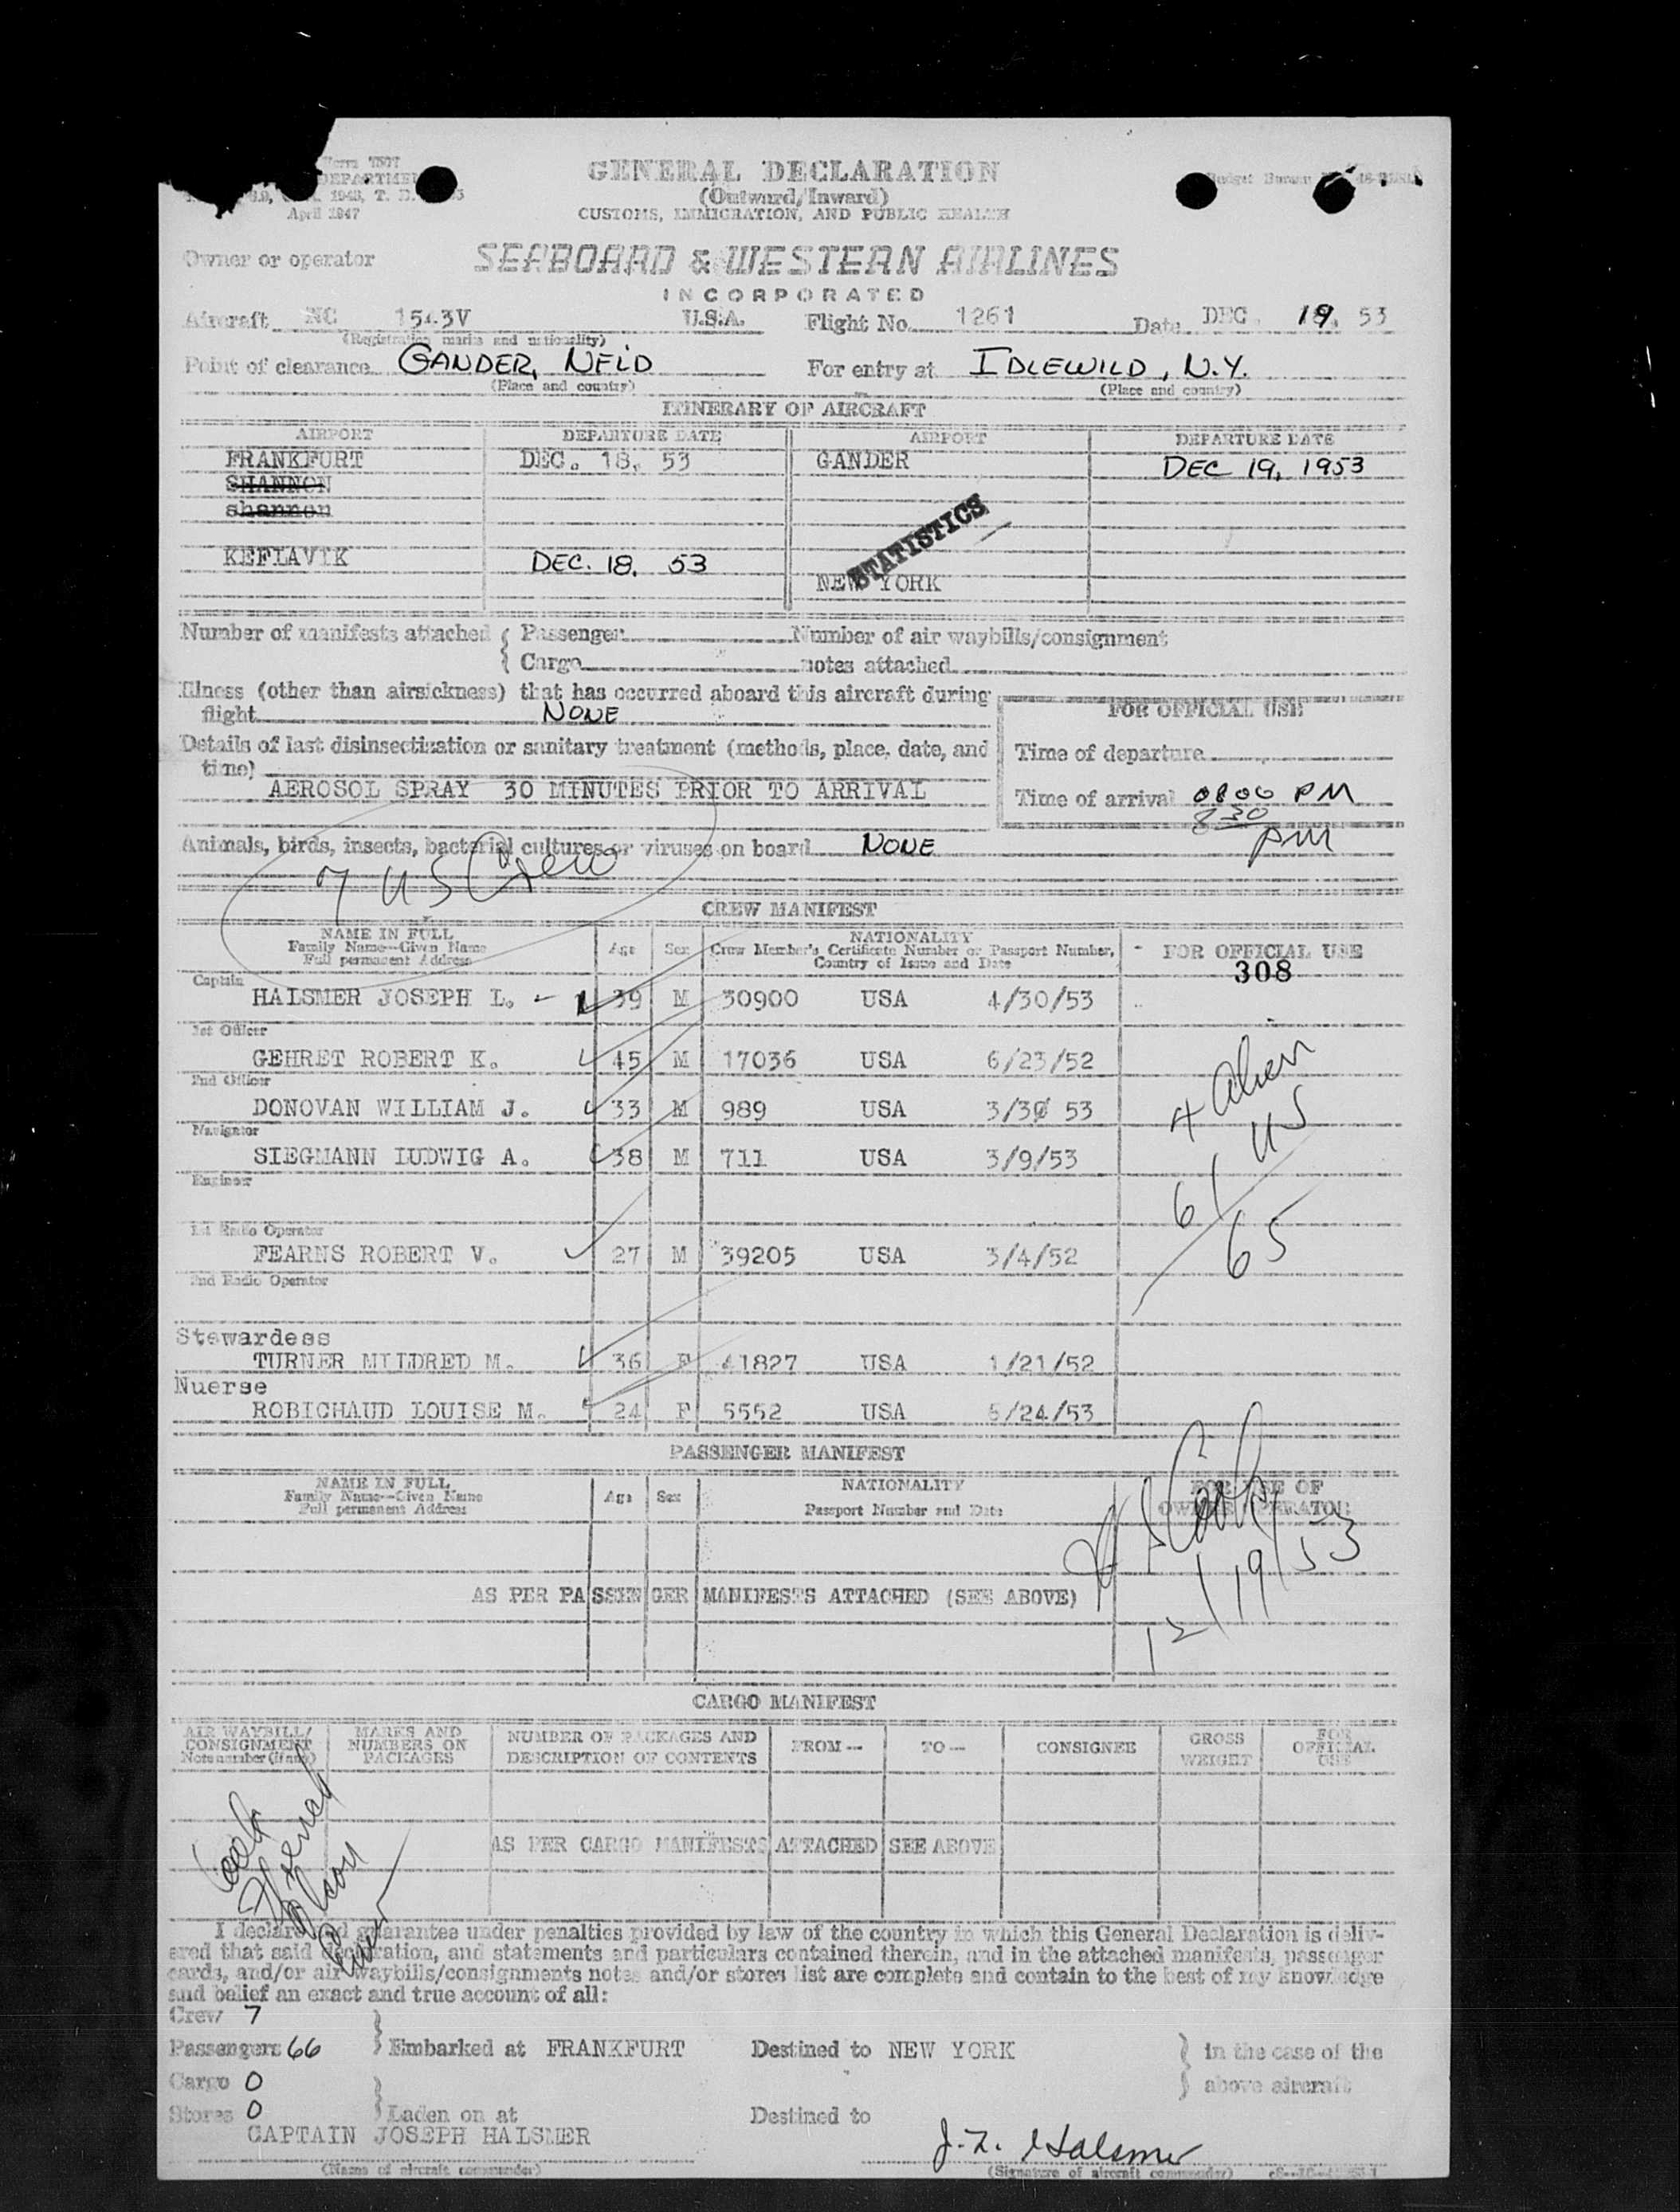 Form 7507
DEPARTMENT
1943, T. D.
April 1947
GENERAL DECLARATION
(Outward/Inward)
CUSTOMS, IMMIGRATION, AND PUBLIC HEALTH
Budget Bureau
Owner or operator SEABOARD & WESTERN AIRLINES
INCORPORATED
Aircraft NC 1543V U.S.A. Flight No. 1261 Date DEC. 19, 53
(Registration marks and nationality)
Point of clearance GANDER, NFLD For entry at IDLEWILD, N.Y.
(Place and country) (Place and country)
ITINERARY OF AIRCRAFT
AIRPORT DEPARTURE DATE AIRPORT DEPARTURE DATE
FRANKFURT DEC. 18, 53 GANDER DEC 19, 1953
SHANNON
shannon
STATISTICS
KEFLAVIK DEC. 18, 53
NEW YORK
Number of manifests attached { Passenger Number of air waybills/consignment
Cargo notes attached
Illness (other than airsickness) that has occurred aboard this aircraft during
flight NONE
FOR OFFICIAL USE
Details of last disinsectization or sanitary treatment (methods, place, date, and
time)
Time of departure
AEROSOL SPRAY 30 MINUTES PRIOR TO ARRIVAL
Time of arrival 0800 PM
830
PM
Animals, birds, insects, bacterial cultures or viruses on board NONE
7 US Crew
CREW MANIFEST
NAME IN FULL
Family Name—Given Name
Full permanent Address
Age Sex
NATIONALITY
Crew Member's Certificate Number or Passport Number,
Country of Issue and Date
FOR OFFICIAL USE
308
Captain
HALSMER JOSEPH L. 39 M 30900 USA 4/30/53
1st Officer
GEHRET ROBERT K. 45 M 17036 USA 6/23/52
2nd Officer
DONOVAN WILLIAM J. 33 M 989 USA 3/30 53
Navigator
SIEGMANN LUDWIG A. 38 M 711 USA 3/9/53
Engineer
4 alien
61 US
65
1st Radio Operator
FEARNS ROBERT V. 27 M 39205 USA 3/4/52
2nd Radio Operator
Stewardess
TURNER MILDRED M. 36 F 41827 USA 1/21/52
Nuerse
ROBICHAUD LOUISE M. 24 F 5552 USA 5/24/53
PASSENGER MANIFEST
NAME IN FULL
Family Name—Given Name
Full permanent Address
Age Sex
NATIONALITY
Passport Number and Date
FOR USE OF
OWNER OPERATOR
12/19/53
AS PER PASSENGER MANIFESTS ATTACHED (SEE ABOVE)
CARGO MANIFEST
AIR WAYBILL/
CONSIGNMENT
Note number (if any)
MARKS AND
NUMBERS ON
PACKAGES
NUMBER OF PACKAGES AND
DESCRIPTION OF CONTENTS
FROM— TO— CONSIGNEE
GROSS
WEIGHT
FOR
OFFICIAL
USE
AS PER CARGO MANIFESTS ATTACHED SEE ABOVE
I declare and guarantee under penalties provided by law of the country in which this General Declaration is deliv-
ered that said declaration, and statements and particulars contained therein, and in the attached manifests, passenger
cards, and/or air waybills/consignments notes and/or stores list are complete and contain to the best of my knowledge
and belief an exact and true account of all:
Crew 7
Passengers 66 Embarked at FRANKFURT Destined to NEW YORK in the case of the
Cargo 0 above aircraft
Stores 0 Laden on at Destined to
CAPTAIN JOSEPH HALSMER J. L. Halsmer
(Name of aircraft commander) (Signature of aircraft commander)